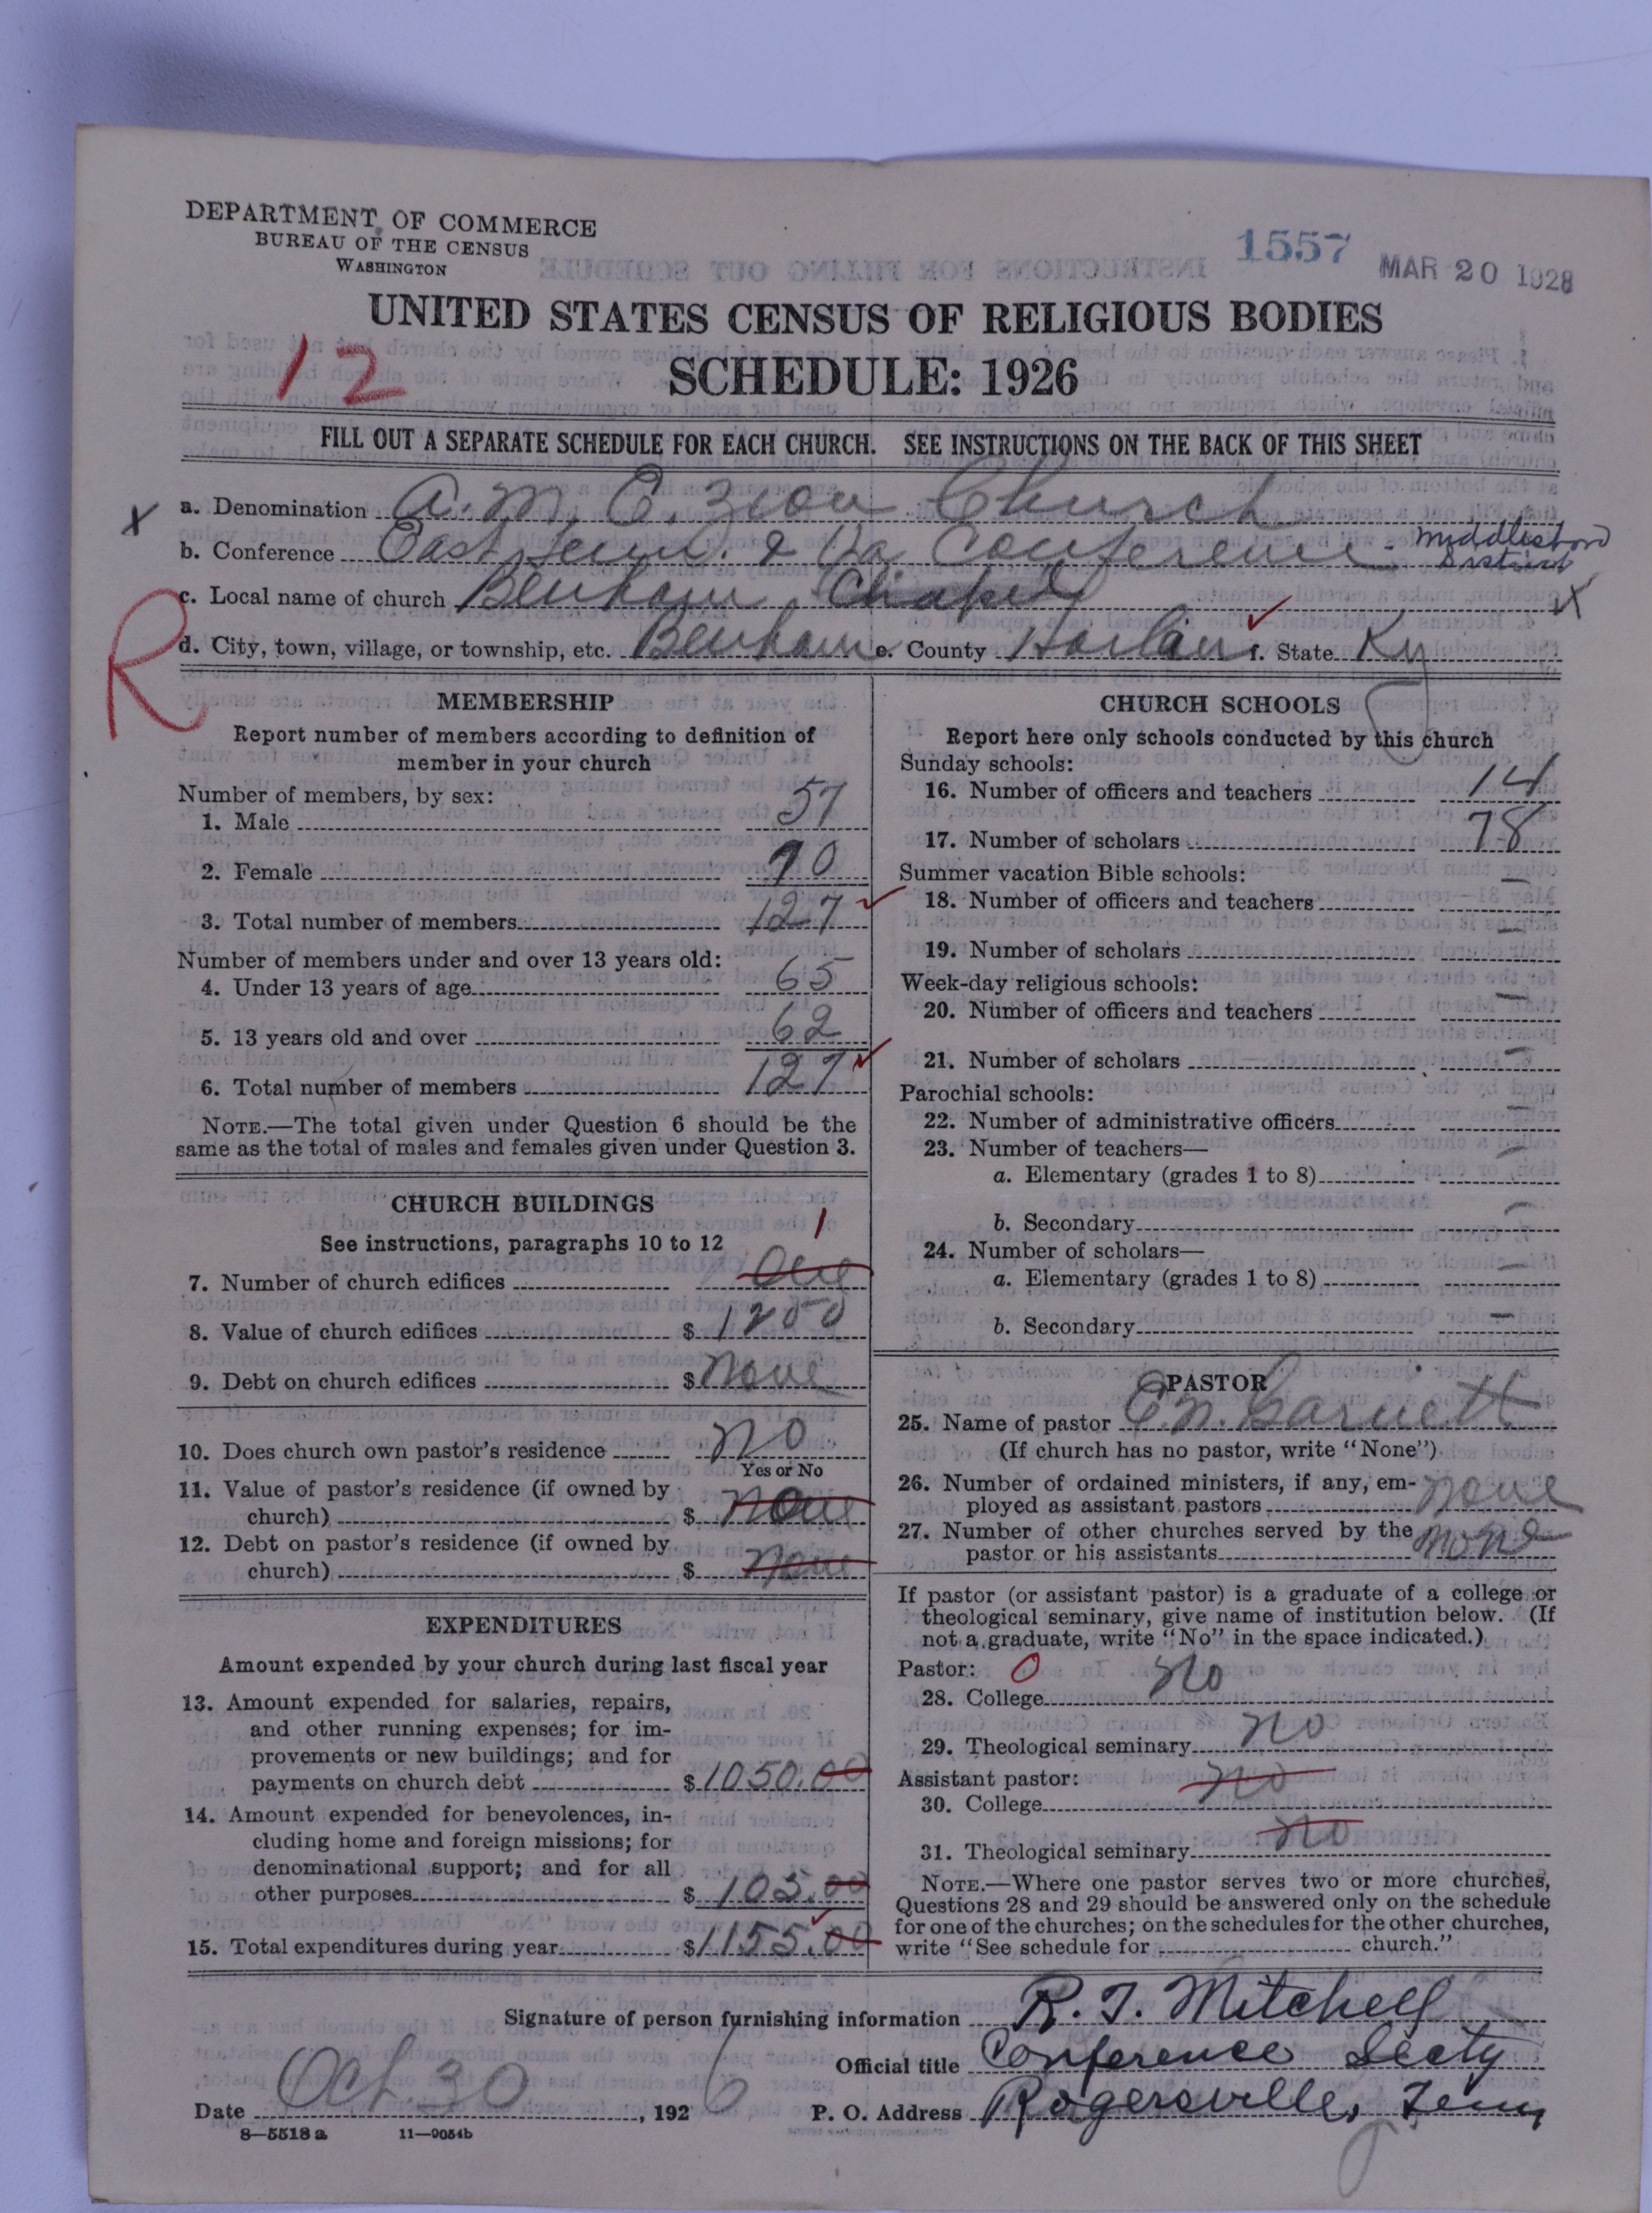 DEPARTMENT OF COMMERCE
BUREAU OF THE CENSUS
WASHINGTON
1557
MAR 20 1928
UNITED STATES CENSUS OF RELIGIOUS BODIES
12
SCHEDULE: 1926
FILL OUT A SEPARATE SCHEDULE FOR EACH CHURCH. SEE INSTRUCTIONS ON THE BACK OF THIS SHEET
X a. Denomination A. M. E. Zion Church
b. Conference East Tenn. & Va Conference - Middlesboro District
c. Local name of church Benham Chapel X
R
d. City, town, village, or township, etc. Benham e. County Harlan f. State Ky
MEMBERSHIP
Report number of members according to definition of
member in your church
Number of members, by sex:
1. Male 57
2. Female 70
3. Total number of members 127
Number of members under and over 13 years old:
4. Under 13 years of age 65
5. 13 years old and over 62
6. Total number of members 127
NOTE.—The total given under Question 6 should be the
same as the total of males and females given under Question 3.
CHURCH BUILDINGS
See instructions, paragraphs 10 to 12
1
7. Number of church edifices One
8. Value of church edifices $ 1200
9. Debt on church edifices $ None
10. Does church own pastor's residence No
Yes or No
11. Value of pastor's residence (if owned by
church) $ None
12. Debt on pastor's residence (if owned by
church) $ None
EXPENDITURES
Amount expended by your church during last fiscal year
13. Amount expended for salaries, repairs,
and other running expenses; for im-
provements or new buildings; and for
payments on church debt $ 1050.00
14. Amount expended for benevolences, in-
cluding home and foreign missions; for
denominational support; and for all
other purposes $ 105.00
15. Total expenditures during year $ 1155.00
CHURCH SCHOOLS
Report here only schools conducted by this church
Sunday schools:
16. Number of officers and teachers 14
17. Number of scholars 78
Summer vacation Bible schools:
18. Number of officers and teachers —
19. Number of scholars —
Week-day religious schools:
20. Number of officers and teachers —
21. Number of scholars —
Parochial schools:
22. Number of administrative officers —
23. Number of teachers—
a. Elementary (grades 1 to 8) —
b. Secondary —
24. Number of scholars—
a. Elementary (grades 1 to 8) —
b. Secondary —
PASTOR
25. Name of pastor C. N. Garnett
(If church has no pastor, write "None")
26. Number of ordained ministers, if any, em-
ployed as assistant pastors None
27. Number of other churches served by the
pastor or his assistants None
If pastor (or assistant pastor) is a graduate of a college or
theological seminary, give name of institution below. (If
not a graduate, write "No" in the space indicated.)
Pastor: 0
28. College No
29. Theological seminary No
Assistant pastor:
30. College No
31. Theological seminary No
NOTE.—Where one pastor serves two or more churches,
Questions 28 and 29 should be answered only on the schedule
for one of the churches; on the schedules for the other churches,
write "See schedule for church."
Signature of person furnishing information R. T. Mitchell
Official title Conference Secty
Date Oct. 30, 1926 P. O. Address Rogersville, Tenn
8—5518 a 11—9054b